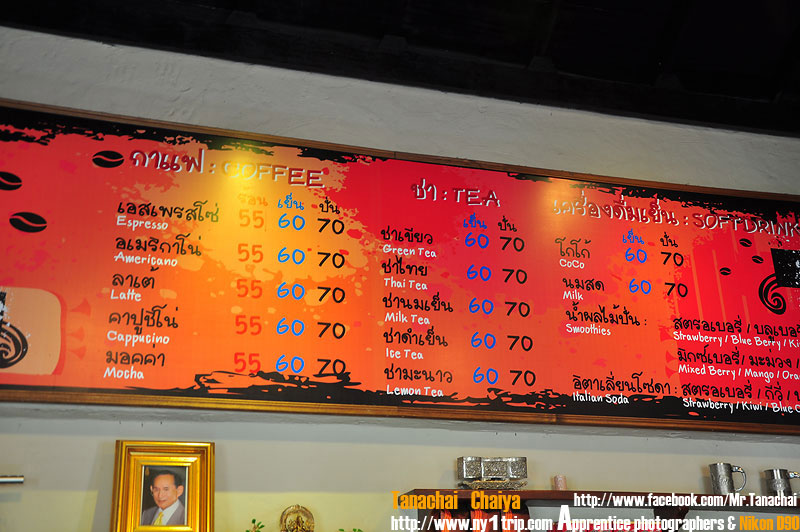 กาแฟ : COFFEE
ร้อน เย็น ปั่น
เอสเพรสโซ่ 55 60 70
Espresso
อเมริกาโน่ 55 60 70
Americano
ลาเต้ 55 60 70
Latte
คาปูชิโน่ 55 60 70
Cappucino
มอคคา 55 60 70
Mocha
ชา : TEA
เย็น ปั่น
ชาเขียว 60 70
Green Tea
ชาไทย 60 70
Thai Tea
ชานมเย็น 60 70
Milk Tea
ชาดำเย็น 60 70
Ice Tea
ชามะนาว 60 70
Lemon Tea
เครื่องดื่มเย็น : SOFTDRINK
เย็น ปั่น
โกโก้ 60 70
CoCo
นมสด 60 70
Milk
น้ำผลไม้ปั่น : สตรอเบอรี่ / บลูเบอรี่
Smoothies Strawberry / Blue Berry /
มิกซ์เบอรี่ / มะม่วง /
Mixed Berry / Mango /
อิตาเลี่ยนโซดา : สตรอเบอรี่ / กีวี่ /
Italian Soda Strawberry / Kiwi / Blue
Tanachai Chaiya http://www.facebook.com/Mr.Tanachai
http://www.ny1trip.com Apprentice photographers & Nikon D90